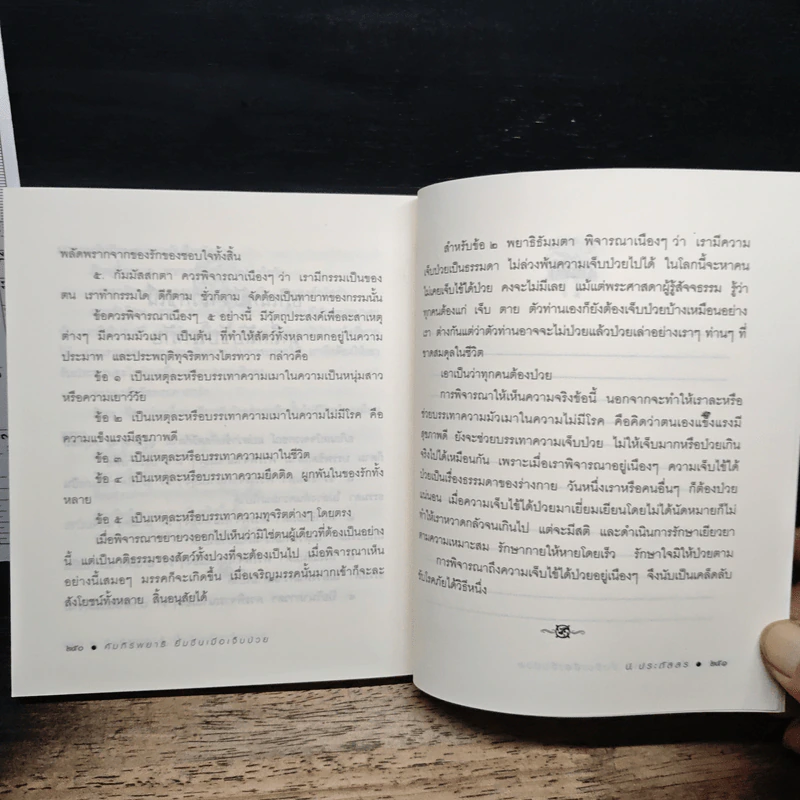 พลัดพรากจากของรักของชอบใจทั้งสิ้น
๕. กัมมัสสกตา ควรพิจารณาเนืองๆ ว่า เรามีกรรมเป็นของ
ตน เราทำกรรมใด ดีก็ตาม ชั่วก็ตาม จัดต้องเป็นทายาทของกรรมนั้น
ข้อควรพิจารณาเนืองๆ ๕ อย่างนี้ มีวัตถุประสงค์เพื่อละสาเหตุ
ต่างๆ มีความมัวเมา เป็นต้น ที่ทำให้สัตว์ทั้งหลายตกอยู่ในความ
ประมาท และประพฤติทุจริตทางไตรทวาร กล่าวคือ
ข้อ ๑ เป็นเหตุละหรือบรรเทาความเมาในความเป็นหนุ่มสาว
หรือความเยาว์วัย
ข้อ ๒ เป็นเหตุละหรือบรรเทาความเมาในความไม่มีโรค คือ
ความแข็งแรงมีสุขภาพดี
ข้อ ๓ เป็นเหตุละหรือบรรเทาความเมาในชีวิต
ข้อ ๔ เป็นเหตุละหรือบรรเทาความยึดติด ผูกพันในของรักทั้ง
หลาย
ข้อ ๕ เป็นเหตุละหรือบรรเทาความทุจริตต่างๆ โดยตรง
เมื่อพิจารณาขยายวงออกไปเห็นว่ามิใช่ตนผู้เดียวที่ต้องเป็นอย่าง
นี้ แต่เป็นคติธรรมของสัตว์ทั้งปวงที่จะต้องเป็นไป เมื่อพิจารณาเห็น
อย่างนี้เสมอๆ มรรคก็จะเกิดขึ้น เมื่อเจริญมรรคนั้นมากเข้าก็จะละ
สังโยชน์ทั้งหลาย สิ้นอนุสัยได้
๒๕๐ • คัมภีรพยาธิ ยิ้มรื่นเมื่อเจ็บป่วย
สำหรับข้อ ๒ พยาธิธัมมตา พิจารณาเนืองๆ ว่า เรามีความ
เจ็บป่วยเป็นธรรมดา ไม่ล่วงพ้นความเจ็บป่วยไปได้ ในโลกนี้จะหาคน
ไม่เคยเจ็บไข้ได้ป่วย คงจะไม่มีเลย แม้แต่พระศาสดาผู้รู้สัจจธรรม รู้ว่า
ทุกคนต้องแก่ เจ็บ ตาย ตัวท่านเองก็ยังต้องเจ็บป่วยบ้างเหมือนอย่าง
เรา ต่างกันแต่ว่าตัวท่านอาจจะไม่ป่วยแล้วป่วยเล่าอย่างเราๆ ท่านๆ ที่
ขาดสมดุลในชีวิต
เอาเป็นว่าทุกคนต้องป่วย
การพิจารณาให้เห็นความจริงข้อนี้ นอกจากจะทำให้เราละหรือ
ช่วยบรรเทาความมัวเมาในความไม่มีโรค คือคิดว่าตนเองแข็งแรงมี
สุขภาพดี ยังจะช่วยบรรเทาความเจ็บป่วย ไม่ให้เจ็บมากหรือป่วยเกิน
จริงไปได้เหมือนกัน เพราะเมื่อเราพิจารณาอยู่เนืองๆ ความเจ็บไข้ได้
ป่วยเป็นเรื่องธรรมดาของร่างกาย วันหนึ่งเราหรือคนอื่นๆ ก็ต้องป่วย
แน่นอน เมื่อความเจ็บไข้ได้ป่วยมาเยี่ยมเยียนโดยไม่ได้นัดหมายก็ไม่
ทำให้เราหวาดกลัวจนเกินไป แต่จะมีสติ และดำเนินการรักษาเยียวยา
ตามความเหมาะสม รักษากายให้หายโดยเร็ว รักษาใจมิให้ป่วยตาม
การพิจารณาถึงความเจ็บไข้ได้ป่วยอยู่เนืองๆ จึงนับเป็นเคล็ดลับ
รับโรคภัยได้วิธีหนึ่ง
น. ประภัสสร • ๒๕๑